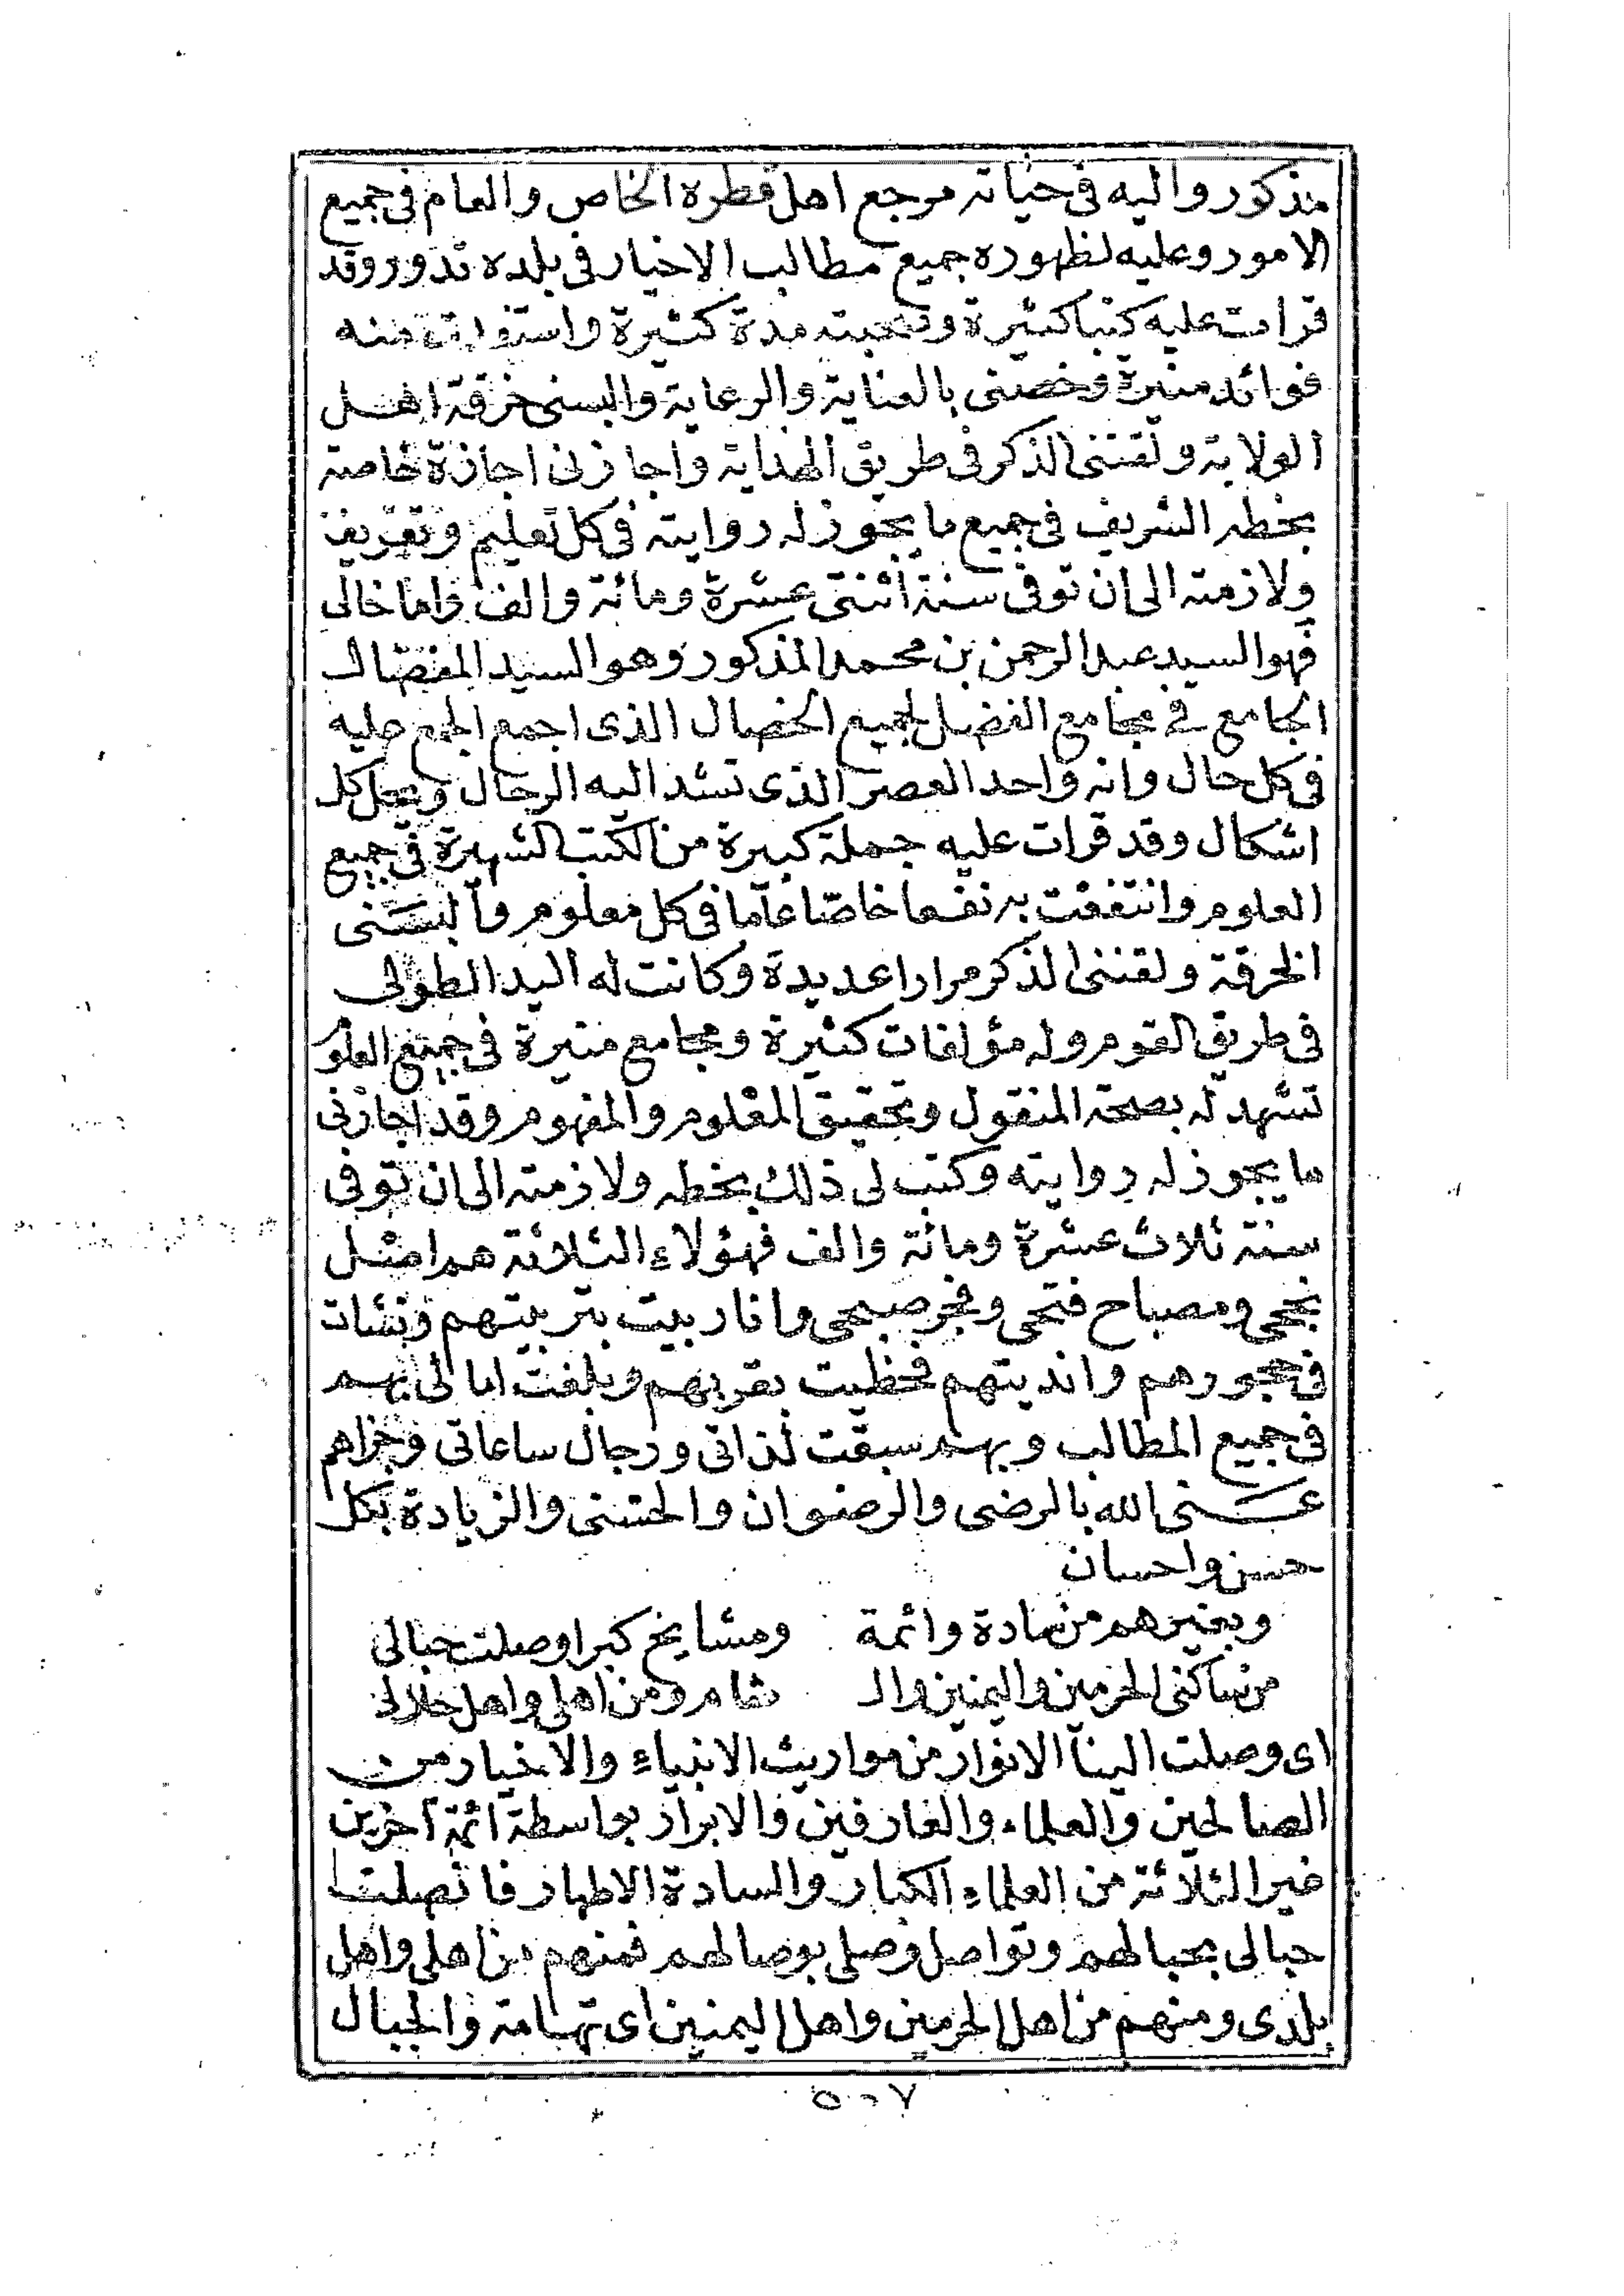 مذكور واليه فى حياته مرجع اهل قطره الخاص والعام فى جميع
الامور وعليه لظهوره جميع مطالب الاخيار فى بلده تدور وقد
قرات عليه كتبا كثيرة وصحبته مدة كثيرة واستفدت منه
فوائد منيرة وخصنى بالعناية والرعاية والبسنى خرقة اهل
الولاية ولقننى الذكر فى طريق الهداية واجازنى اجازة خاصة
بخطه الشريف فى جميع ما يجوز له روايته فى كل تعليم وتعريف
ولازمته الى ان توفى سنة اثنتى عشرة ومائة والف واما خالى
فهو السيد عبد الرحمن بن محمد المذكور وهو السيد المفضال
الجامع فى مجامع الفضل لجميع الخصال الذى اجمع الجمع عليه
فى كل حال وانه واحد العصر الذى تشد اليه الرحال وتحل كل
اشكال وقد قرات عليه جملة كبيرة من الكتب الشهيرة فى جميع
العلوم وانتفعت به نفعا خاصّا عامّا فى كل معلوم وألبسَنى
الخرقة ولقننى الذكر مرارا عديدة وكانت له اليد الطولى
فى طريق القوم وله مؤلفات كثيرة ومجامع منيرة فى جميع العلو
تشهد له بصحة المنقول وتحقيق المعلوم والمفهوم وقد اجازنى
ما يجوز له روايته وكتب لى ذلك بخطه ولازمته الى ان توفى
سنة ثلاث عشرة ومائة والف فهؤلاء الثلاثة هم اصل
نجحى ومصباح فتحى وفجر صبحى وانا ربيت بتربيتهم ونشات
فى حجورهم وانديتهم فحظيت بقربهم وبلغت امالى بهم
فى جميع المطالب وبهم سبقت لذاتى ورجال ساعاتى وجزاهم
عَنى الله بالرضى والرضوان والحسنى والزيادة بكل
حسن واحسان
وبغيرهم من سادة وائمة ومشايخ كبرا وصلت حبالى
من ساكنى الحرمين واليمنين وال شام ومن اهلى واهل حلالى
اى وصلت الينا الانوار من مواريث الانبياء والاخيار من
الصالحين والعلماء والعارفين والابرار بواسطة ائمة آخرين
غير الثلاثة من العلماء الكبار والسادة الاطهار فاتصلت
حبالى بحبالهم وتواصل وصلى بوصالهم فمنهم من اهلى واهل
بلدى ومنهم من اهل الحرمين واهل اليمنين اى تهامة والجبال
٥٠٧